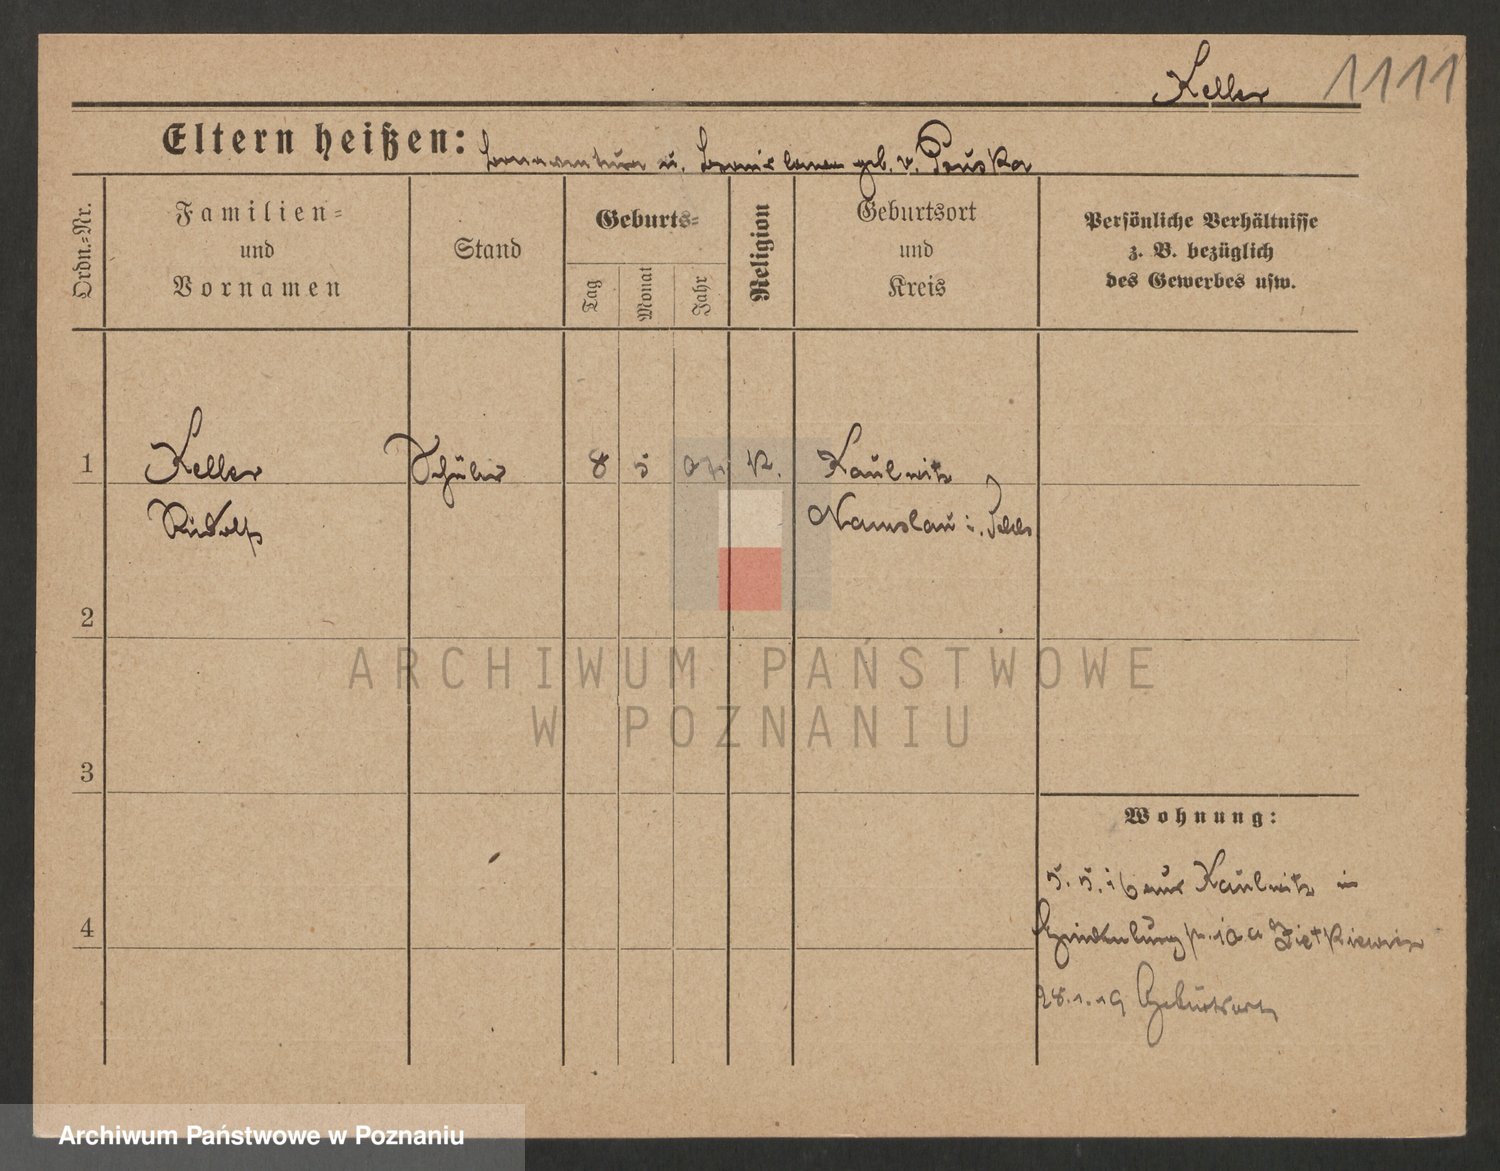 Keller 1111
Eltern heißen: Bonaventura u. Bronislawa geb. v. Pruska
Ordn.=Nr.
Familien=
und
Vornamen
Stand
Geburts=
Tag
Monat
Jahr
Religion
Geburtsort
und
Kreis
Persönliche Verhältnisse
z. B. bezüglich
des Gewerbes usw.
1 Keller Schüler 8 5 K. Kaulwitz
Rudolf Namslau i. Schls
2
ARCHIWUM PAŃSTWOWE
W POZNANIU
3
Wohnung:
5. 5. 16 aus Kaulwitz in
4
28.1.19 Geburtsort
Archiwum Państwowe w Poznaniu